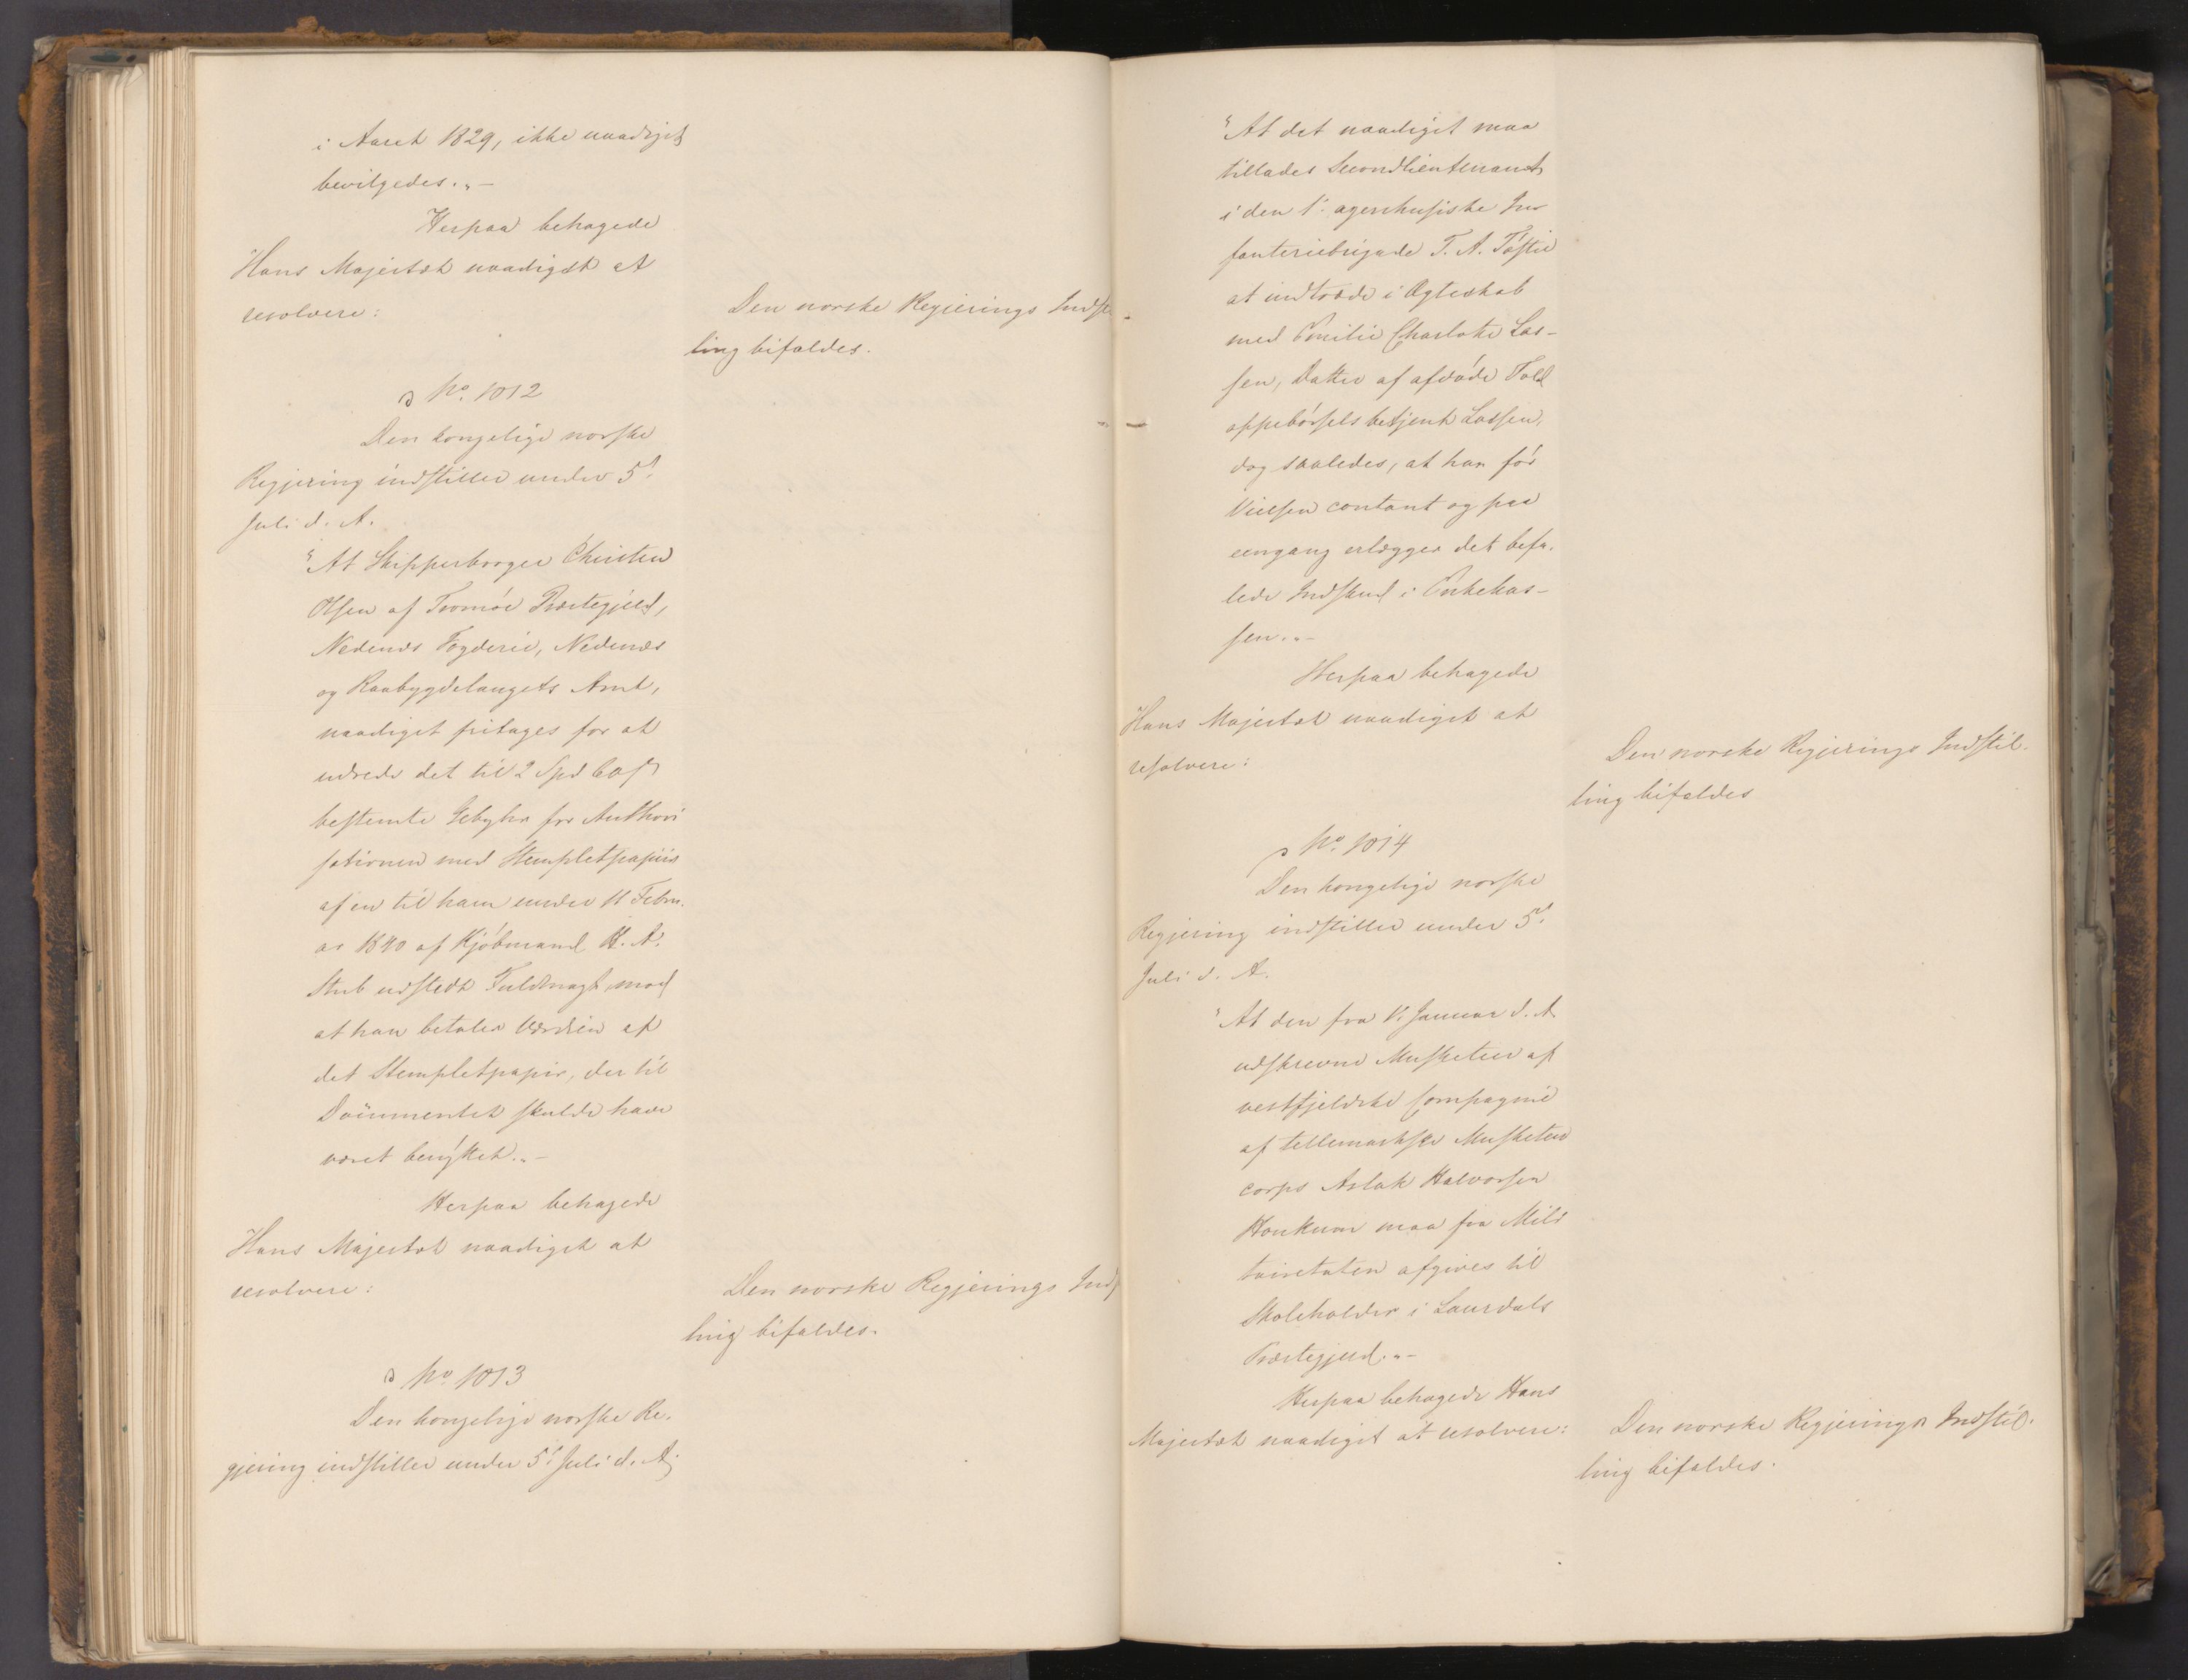 i Aaret 1829, ikke naadigst
bevilgedes."-
Herpaa behagede
Hans Majestæt naadigst at
resolvere:
Den norske Regjerings Indstil
ling bifaldes.
No. 1012
Den kongelige norske
Regjering indstiller under 5te
Juli d. A.
"At Skipperborger Christen
Olsen af Tromöe Præstegjeld,
Nedenæs Fogderie, Nedenæs
og Raabygdelaugets Amt,
naadigst fritages for at
udrede det til 2 Spd 60 s
bestemte Gebyhr for Authori
sationen med Stempletpapiir
af en til ham under 11 Febru-
ar 1840 af Kjöbmand H. A.
Stub udstedt Fuldmagt, mod
at han betaler Værdien af
det Stempletpapir, der til
Documentet skulde have
været benyttet."-
Herpaa behagede
Hans Majestæt naadigst at
resolvere:
Den norske Regjerings Inds
ling bifaldes.
No. 1013
Den kongelige norske Re-
gjering indstiller under 5te Juli d. A.
"At det naadigst maa
tillades Secondlieutenant
i den 1ste agershusiske In-
fanteriebrigade T. A.
at indtræde i Ægteskab
med Emilie Charlotte Las-
sen, Datter af afdöde Told
oppebörselsbetjent Lassen,
dog saaledes, at han för
Vielsen contant og paa
eengang erlægger det befa-
lede Indskud i Enkekas-
sen."-
Herpaa behagede
Hans Majestæt naadigst at
resolvere:
Den norske Regjerings Indstil-
ling bifaldes
No. 1014
Den kongelige norske
Regjering indstiller under 5te
Juli d. A.
"At den fra 1. Januar d. A.
udskrevne Musketeer af
vestfjeldske Compagnie
af tellemarkske Musketeer
corps Aslak Halvorsen
Haukum maa fra Mili
tairetaten afgives til
Skoleholder i Laurdals
Præstegjeld."-
Herpaa behagede Hans
Majestæt naadigst at resolvere:
Den norske Regjerings Indstil-
ling bifaldes.